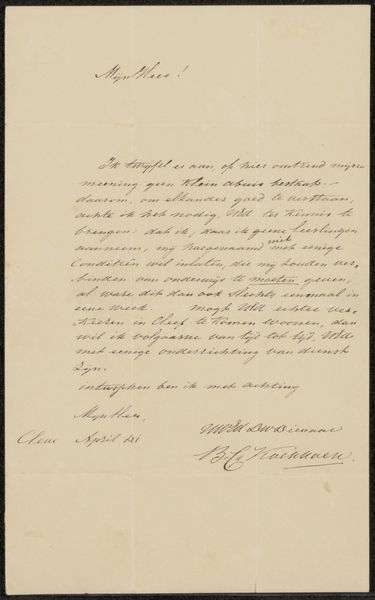 Mijn Heer!
Ik twijfel er aan, of hier omtrend mijne
meening geen klein abuis bestaat –
daarom, om elkander goed te verstaan,
achte ik het nodig, UEd ter kennis te
brengen: dat ik, daar ik geene leerlingen
aanneem, mij hoegenaamd niet met eenige
Conditiën wil inlaten, die mij zouden ver-
binden om onderwijs te moeten geven,
al ware dit dan ook slechts eenmaal in
eene week. mogt UEd echter ver-
kiezen in Cleef te komen woonen, dan
wil ik volgaarne van tijd tot tijd, UEd
met eenige onderrichting van dienst
zijn.
intusschen ben ik met achting
Mijn Heer,
UWEd DW Dienaar
Cleve April 21
B. C. Koekkoek.